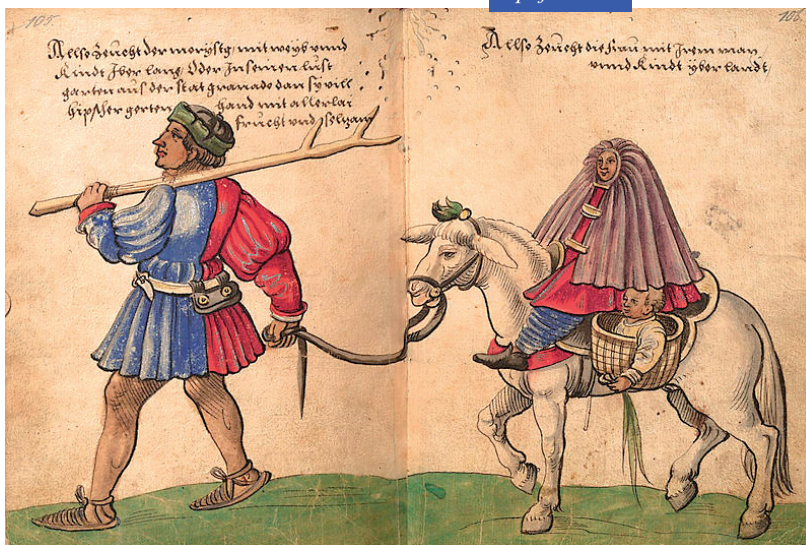 105.
Allso Zeücht der morystg mit weyb vnnd
Kindt Iber lang Oder In seinen lust
garten aus der stat granado dan sy vill
hipscher gerten hand mit allerlai
Frücht vnd selzam
106
Allso Zeücht die Frau mit Irem man
vnnd Kindt yber landt